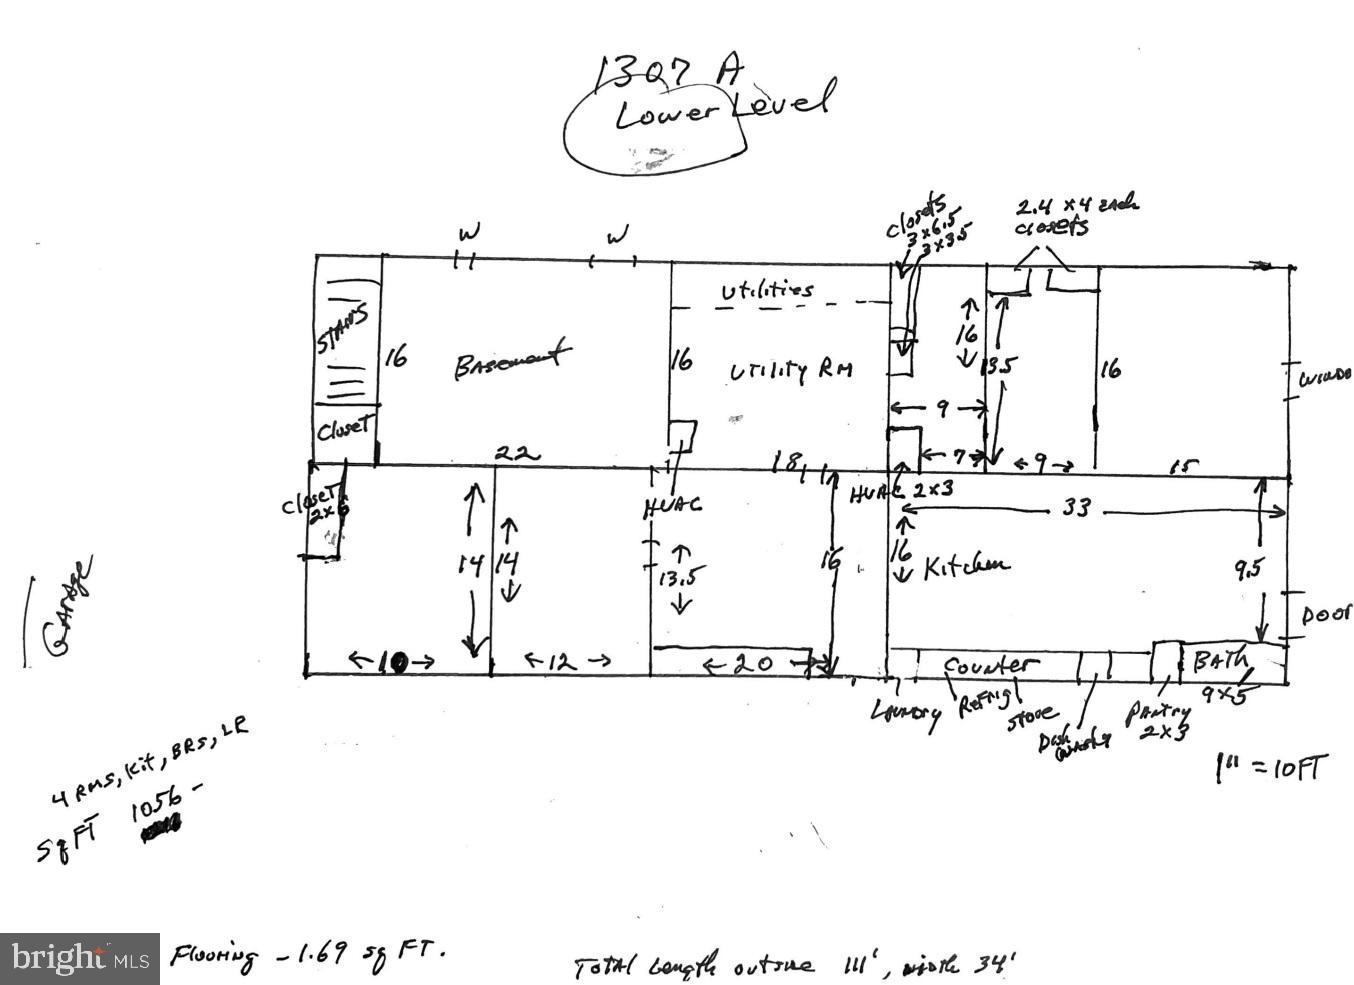 1307 A
Lower Level
W
W
closets
3 x 6.5
3 x 3.5
2.4 x 4 each
closets
Utilities
STAIRS
16
Basement
16
Utility RM
16
13.5
16
WINDO
9
Closet
22
18
7
9
15
Closet
2x6
HVAC
HVAC 2x3
33
14
14
13.5
16
16
Kitchen
9.5
DOOR
Garage
10
12
20
Counter
BATH
9x5
Laundry
Refrig
Stove
Dish
washer
Pantry
2x3
1" = 10FT
4 RMS, Kit, BRS, LR
Sq FT 1056 -
Flooring - 1.69 sq FT.
Total Length outside 111', width 34'
bright MLS